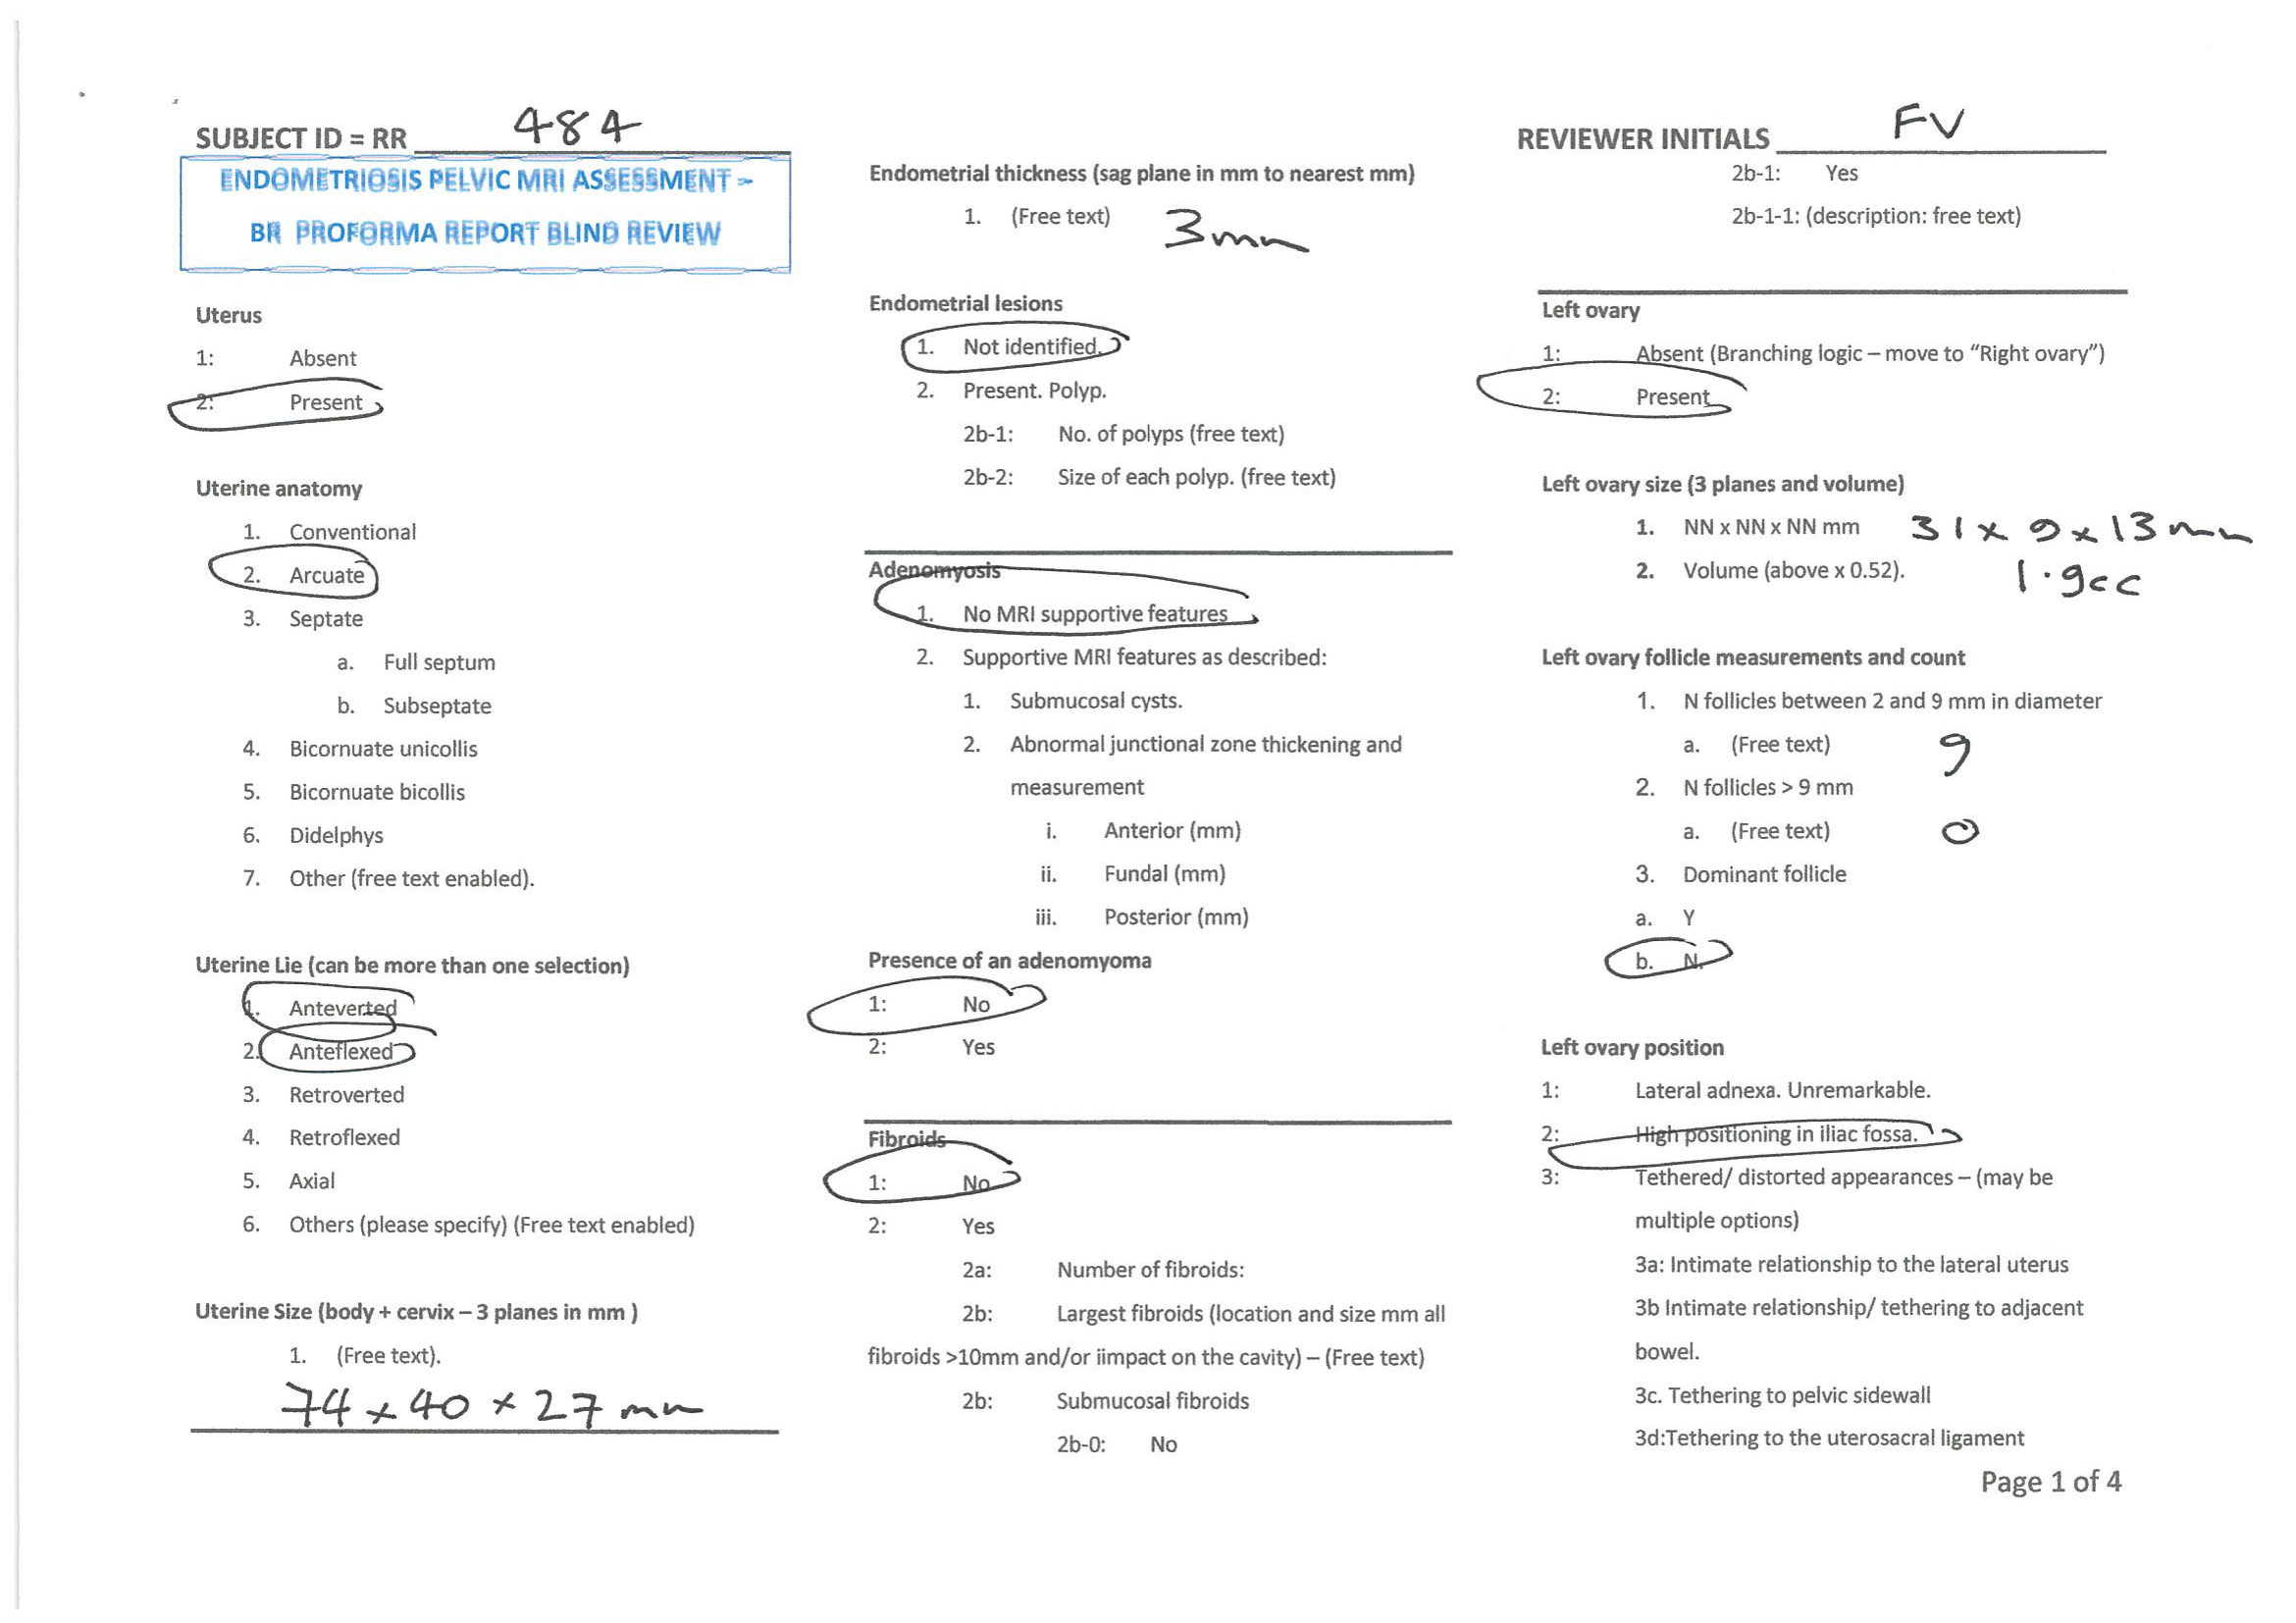 SUBJECT ID = RR 484
ENDOMETRIOSIS PELVIC MRI ASSESSMENT –
BR PROFORMA REPORT BLIND REVIEW
Uterus
1: Absent
2: Present
Uterine anatomy
1. Conventional
2. Arcuate
3. Septate
a. Full septum
b. Subseptate
4. Bicornuate unicollis
5. Bicornuate bicollis
6. Didelphys
7. Other (free text enabled).
Uterine Lie (can be more than one selection)
1. Anteverted
2. Anteflexed
3. Retroverted
4. Retroflexed
5. Axial
6. Others (please specify) (Free text enabled)
Uterine Size (body + cervix – 3 planes in mm )
1. (Free text).
74 x 40 x 27 mm
Endometrial thickness (sag plane in mm to nearest mm)
1. (Free text) 3mm
Endometrial lesions
1. Not identified.
2. Present. Polyp.
2b-1: No. of polyps (free text)
2b-2: Size of each polyp. (free text)
Adenomyosis
1. No MRI supportive features
2. Supportive MRI features as described:
1. Submucosal cysts.
2. Abnormal junctional zone thickening and
measurement
i. Anterior (mm)
ii. Fundal (mm)
iii. Posterior (mm)
Presence of an adenomyoma
1: No
2: Yes
Fibroids
1: No
2: Yes
2a: Number of fibroids:
2b: Largest fibroids (location and size mm all
fibroids >10mm and/or iimpact on the cavity) – (Free text)
2b: Submucosal fibroids
2b-0: No
REVIEWER INITIALS FV
2b-1: Yes
2b-1-1: (description: free text)
Left ovary
1: Absent (Branching logic – move to “Right ovary”)
2: Present
Left ovary size (3 planes and volume)
1. NN x NN x NN mm 31 x 9 x 13 mm
2. Volume (above x 0.52). 1.9cc
Left ovary follicle measurements and count
1. N follicles between 2 and 9 mm in diameter
a. (Free text) 9
2. N follicles > 9 mm
a. (Free text) 0
3. Dominant follicle
a. Y
b. N.
Left ovary position
1: Lateral adnexa. Unremarkable.
2: High positioning in iliac fossa.
3: Tethered/ distorted appearances – (may be
multiple options)
3a: Intimate relationship to the lateral uterus
3b Intimate relationship/ tethering to adjacent
bowel.
3c. Tethering to pelvic sidewall
3d:Tethering to the uterosacral ligament
Page 1 of 4